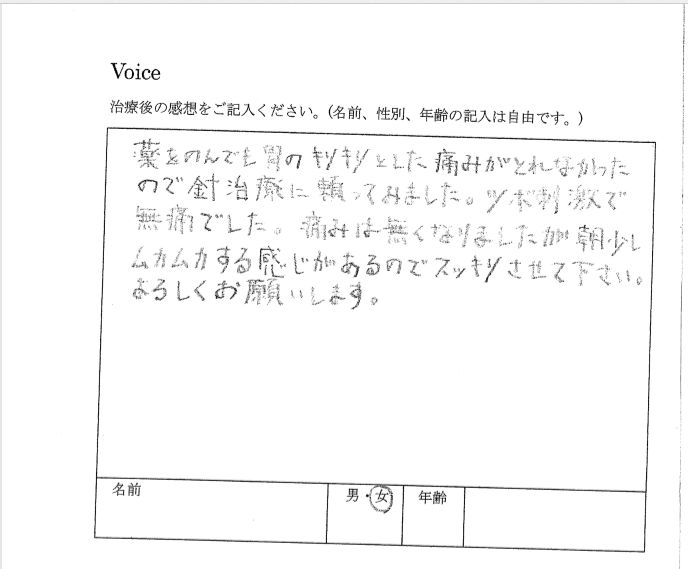 Voice
治療後の感想をご記入ください。(名前、性別、年齢の記入は自由です。)
薬をのんでも胃のキリキリとした痛みがとれなかった
ので針治療に頼ってみました。ツボ刺激で
無痛でした。痛みは無くなりましたが朝少し
ムカムカする感じがあるのでスッキリさせて下さい。
よろしくお願いします。
名前
男・女
年齢